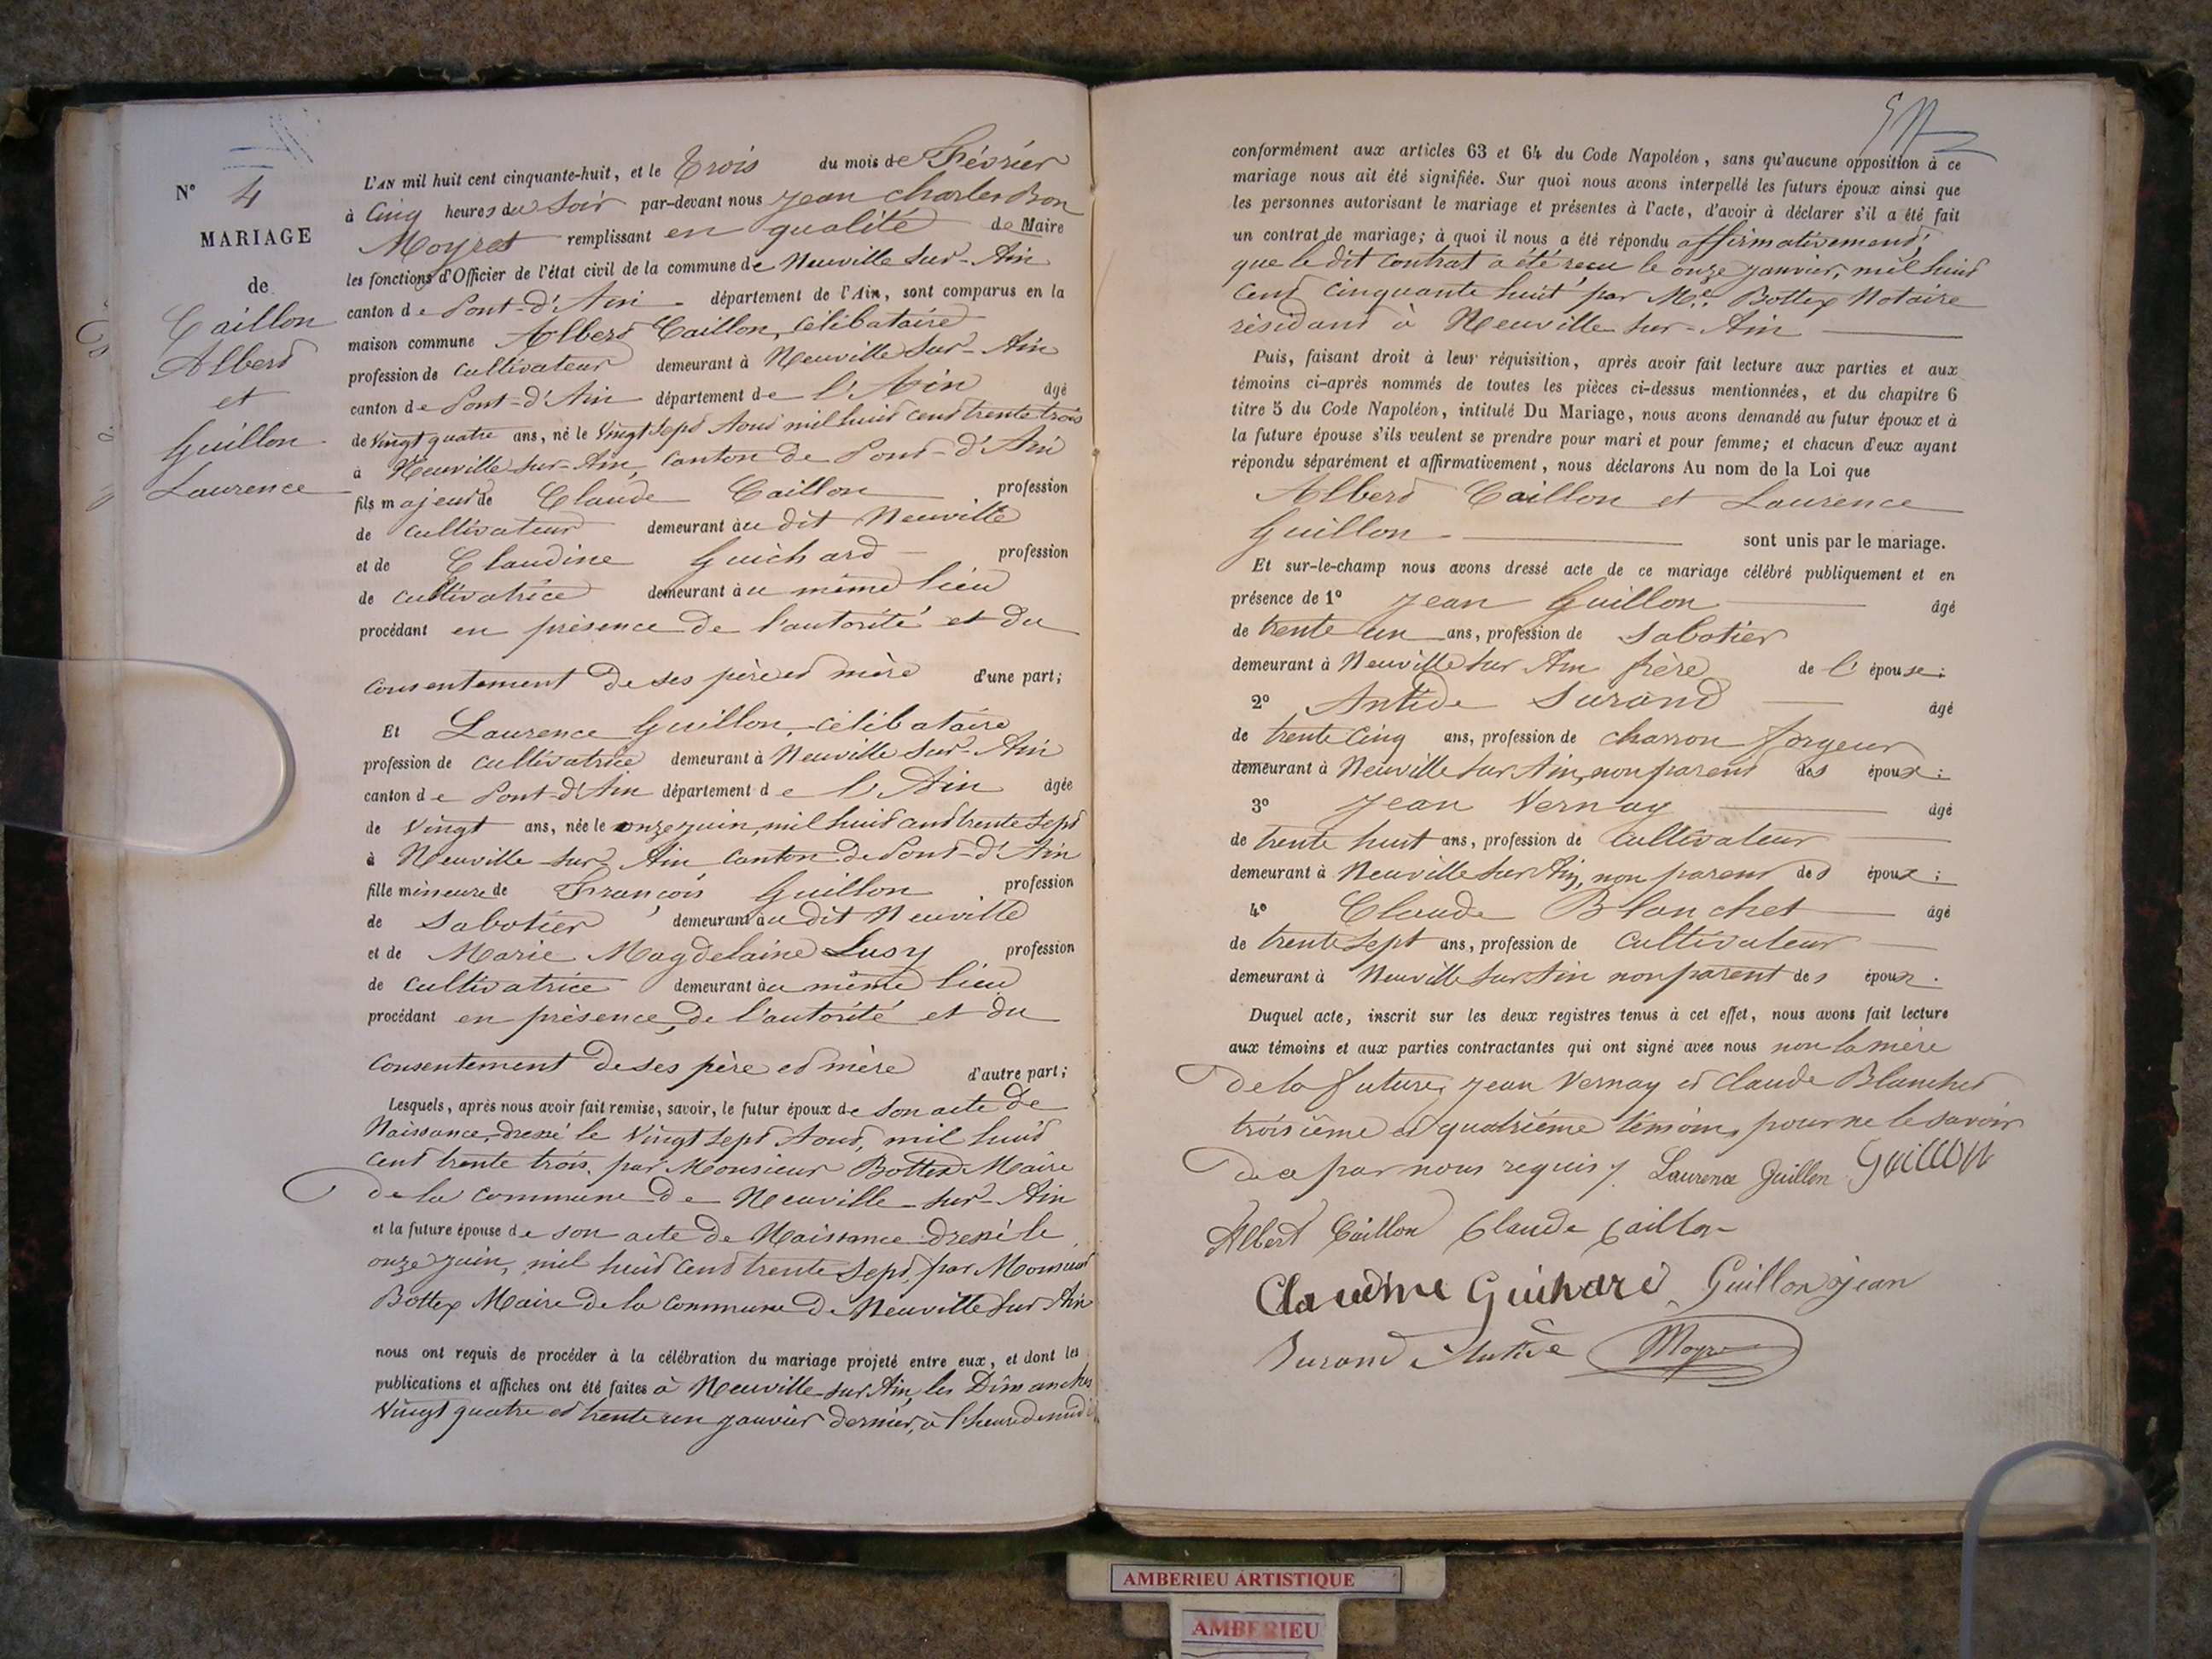 N° 4
MARIAGE
de
Caillon
Albert
et
Guillon
Laurence
L'AN mil huit cent cinquante-huit, et le Trois du mois de Février
à Cinq heures du Soir par-devant nous Jean Charles Bon
Moyret remplissant en qualité de Maire
les fonctions d'Officier de l'état civil de la commune de Neuville sur-Ain
canton de Pont-d'Ain département de l'Ain, sont comparus en la
maison commune Albert Caillon, célibataire
profession de cultivateur demeurant à Neuville sur-Ain
canton de Pont-d'Ain département de l'Ain âgé
de vingt quatre ans, né le Vingt sept Aout mil huit cent trente trois
à Neuville sur-Ain, canton de Pont-d'Ain
fils majeur de Claude Caillon profession
de cultivateur demeurant au dit Neuville
et de Claudine Guichard profession
de cultivatrice demeurant au même lieu
procédant en présence de l'autorité et du
consentement de ses père et mère d'une part;
Et Laurence Guillon, célibataire
profession de cultivatrice demeurant à Neuville sur-Ain
canton de Pont-d'Ain département de l'Ain âgée
de Vingt ans, née le onze juin, mil huit cent trente sept
à Neuville-sur-Ain canton de Pont-d'Ain
fille mineure de François Guillon profession
de Sabotier demeurant au dit Neuville
et de Marie Magdelaine Lusy profession
de cultivatrice demeurant au même lieu
procédant en présence, de l'autorité et du
consentement de ses père et mère d'autre part;
Lesquels, après nous avoir fait remise, savoir, le futur époux de son acte de
Naissance, dressé le Vingt sept Aout, mil huit
cent trente trois, par Monsieur Bottex Maire
de la commune de Neuville-sur-Ain
et la future épouse de son acte de Naissance dressé le
onze juin, mil huit cent trente sept, par Monsieur
Bottex Maire de la commune de Neuville sur Ain
nous ont requis de procéder à la célébration du mariage projeté entre eux, et dont les
publications et affiches ont été faites à Neuville-sur Ain, les Dimanches
Vingt quatre et trente un janvier dernier, à l'heure de midi
conformément aux articles 63 et 64 du Code Napoléon, sans qu'aucune opposition à ce
mariage nous ait été signifiée. Sur quoi nous avons interpellé les futurs époux ainsi que
les personnes autorisant le mariage et présentes à l'acte, d'avoir à déclarer s'il a été fait
un contrat de mariage; à quoi il nous a été répondu affirmativement,
que le dit contrat a été reçu le onze janvier, mil huit
cent cinquante huit par Me. Bottex Notaire
résidant à Neuville sur-Ain
Puis, faisant droit à leur réquisition, après avoir fait lecture aux parties et aux
témoins ci-après nommés de toutes les pièces ci-dessus mentionnées, et du chapitre 6
titre 5 du Code Napoléon, intitulé Du Mariage, nous avons demandé au futur époux et à
la future épouse s'ils veulent se prendre pour mari et pour femme; et chacun d'eux ayant
répondu séparément et affirmativement, nous déclarons Au nom de la Loi que
Albert Caillon et Laurence
Guillon sont unis par le mariage.
Et sur-le-champ nous avons dressé acte de ce mariage célébré publiquement et en
présence de 1° Jean Guillon âgé
de trente un ans, profession de Sabotier
demeurant à Neuville sur Ain frère de l'épouse;
2° Antide Durand âgé
de trente Cinq ans, profession de charron forgeur
demeurant à Neuville sur Ain, non parent des époux;
3° Jean Vernay âgé
de trente huit ans, profession de Cultivateur
demeurant à Neuville sur Ain, non parent des époux;
4° Claude Blanchet âgé
de trente sept ans, profession de cultivateur
demeurant à Neuville sur Ain non parent des époux.
Duquel acte, inscrit sur les deux registres tenus à cet effet, nous avons fait lecture
aux témoins et aux parties contractantes qui ont signé avec nous non la mère
de la future, Jean Vernay et Claude Blanchet
troisième et quatrième témoins, pour ne le savoir
de ce par nous requis. Laurence Guillon Guillon
Albert Caillon Claude Caillon
Claudine Guihard Guillon jean
Durand Antide Moyret
AMBERIEU ARTISTIQUE
AMBERIEU